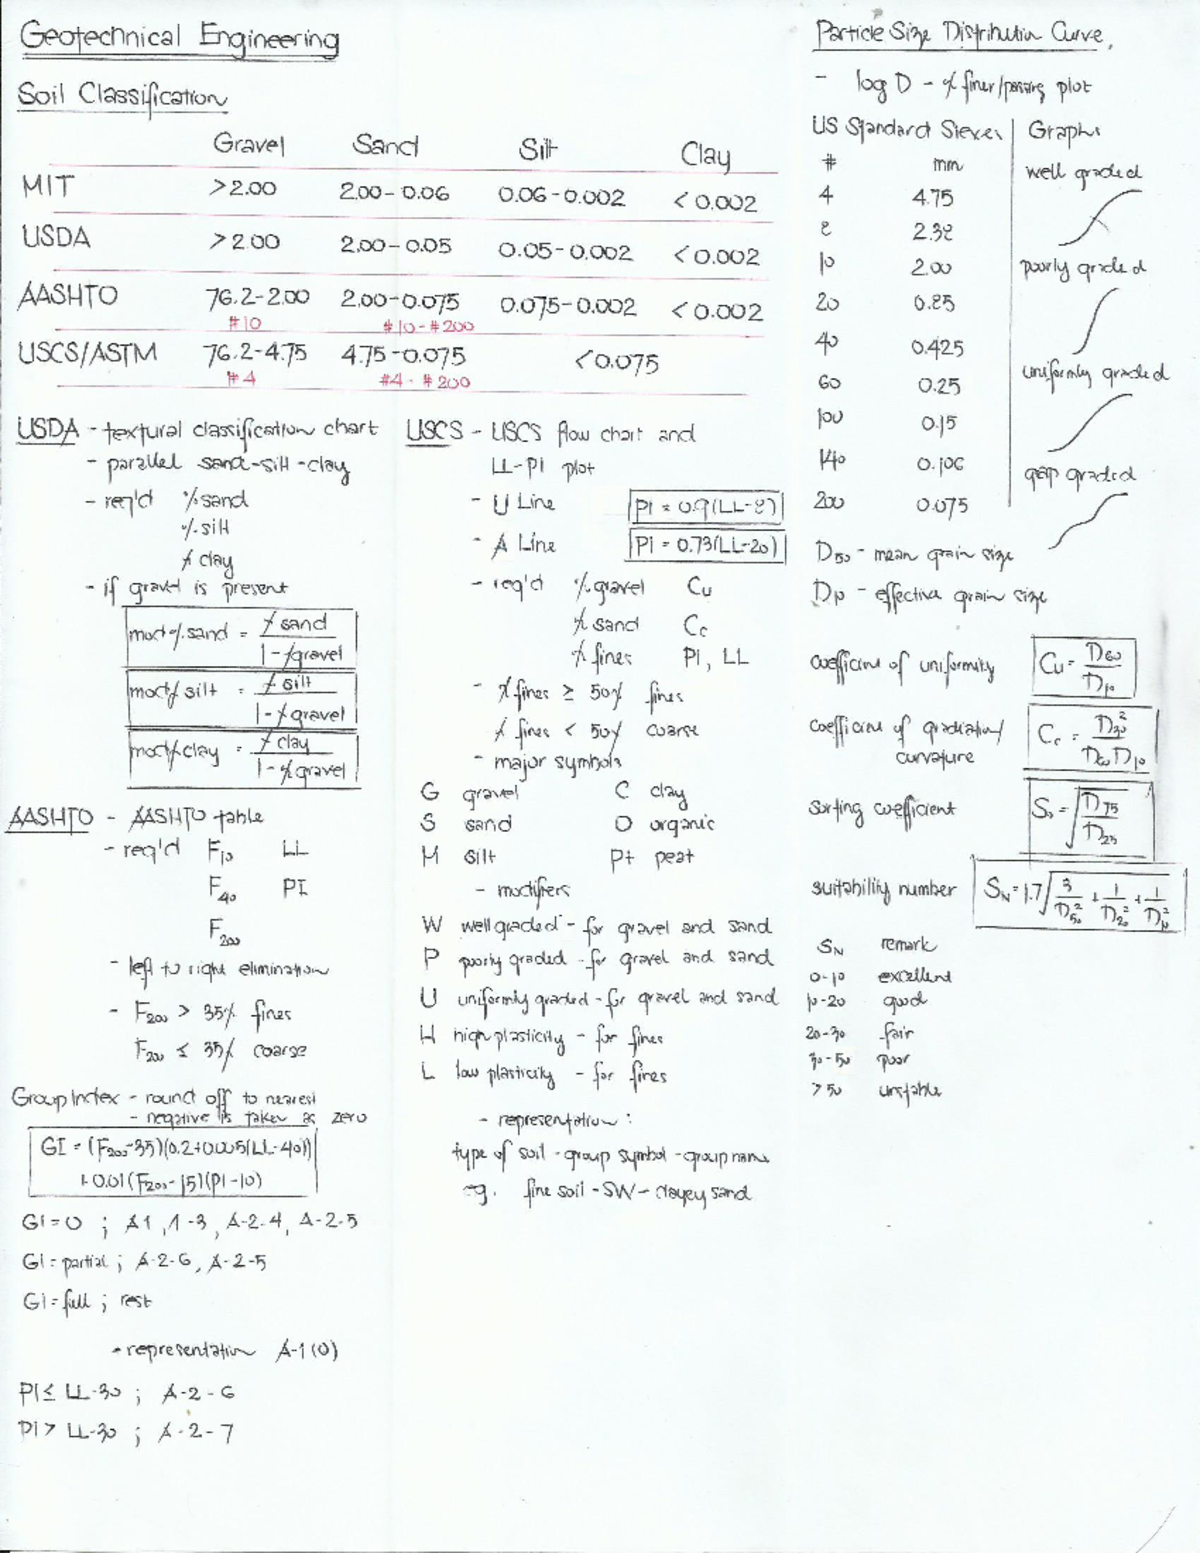 Geotechnical Engineering
Soil Classification
Gravel Sand Silt Clay
MIT >2.00 2.00-0.06 0.06-0.002 <0.002
USDA >2.00 2.00-0.05 0.05-0.002 <0.002
AASHTO 76.2-2.00 2.00-0.075 0.075-0.002 <0.002
#10 #10-#200
USCS/ASTM 76.2-4.75 4.75-0.075 <0.075
#4 #4-#200
USDA - textural classification chart
- parallel sand-silt-clay
- req'd % sand
% silt
% clay
- if gravel is present
mod % sand = % sand / 1-% gravel
mod % silt = % silt / 1-% gravel
mod % clay = % clay / 1-% gravel
AASHTO - AASHTO table
- req'd F10 LL
F40 PI
F200
- left to right elimination
- F200 > 35% fines
F200 ≤ 35% coarse
Group Index - round off to nearest
- negative is taken as zero
GI = (F200-35)(0.2+0.005(LL-40))
+0.01(F200-15)(PI-10)
GI=0 ; A1, A-3, A-2-4, A-2-5
GI=partial ; A-2-6, A-2-5
GI=full ; rest
- representation A-1(0)
PI ≤ LL-30 ; A-2-6
PI > LL-30 ; A-2-7
USCS - USCS flow chart and
LL-PI plot
- U Line PI = 0.9(LL-8)
- A Line PI = 0.73(LL-20)
- req'd % gravel Cu
% sand Cc
% fines PI, LL
- % fines ≥ 50% fines
% fines < 50% coarse
- major symbols
G gravel C clay
S sand O organic
M silt Pt peat
- modifiers
W well graded - for gravel and sand
P poorly graded - for gravel and sand
U uniformly graded - for gravel and sand
H high plasticity - for fines
L low plasticity - for fines
- representation :
type of soil - group symbol - group name
eg. fine soil - SW - clayey sand
Particle Size Distribution Curve
- log D - % finer/passing plot
US Standard Sieves Graphs
# mm
4 4.75
8 2.38
10 2.00
20 0.85
40 0.425
60 0.25
100 0.15
140 0.106
200 0.075
well graded
poorly graded
uniformly graded
gap graded
D50 - mean grain size
D10 - effective grain size
coefficient of uniformity Cu = D60 / D10
coefficient of gradation/
curvature Cc = D30² / D60 D10
sorting coefficient So = √(D75 / D25)
suitability number SN = 1.7√(3/D50² + 1/D20² + 1/D10²)
SN remark
0-10 excellent
10-20 good
20-30 fair
30-50 poor
>50 unstable